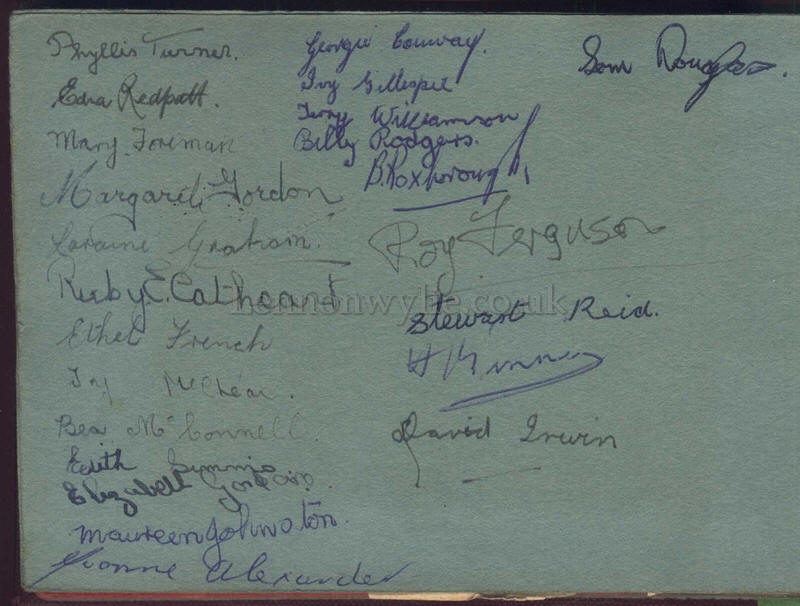 Phyllis Turner.
Edna Redpath.
Mary Foreman
Margaret Gordon
Loraine Graham.
Ruby E. Cathcart
Ethel French
Ivy McClean.
Bea McConnell.
Edith Simms
Elizabeth Gordon.
Maureen Johnston.
Yvonne Alexander
Georgie Conway.
Ivy Gillespie
Terry Williamson
Billy Rodgers.
B Roxborough,
Roy Ferguson
Stewart Reid.
H
David Irwin
Sam Douglas.